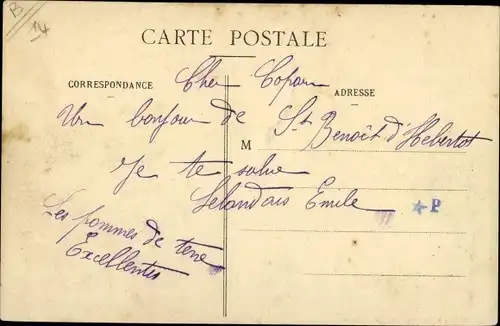 B
14
CARTE POSTALE
CORRESPONDANCE
ADRESSE
Cher Copain
Un bonjour de St Benoît d'Hebertot
M
Je te salue
Lelandais Emile
Les pommes de terre
Excellentes
P